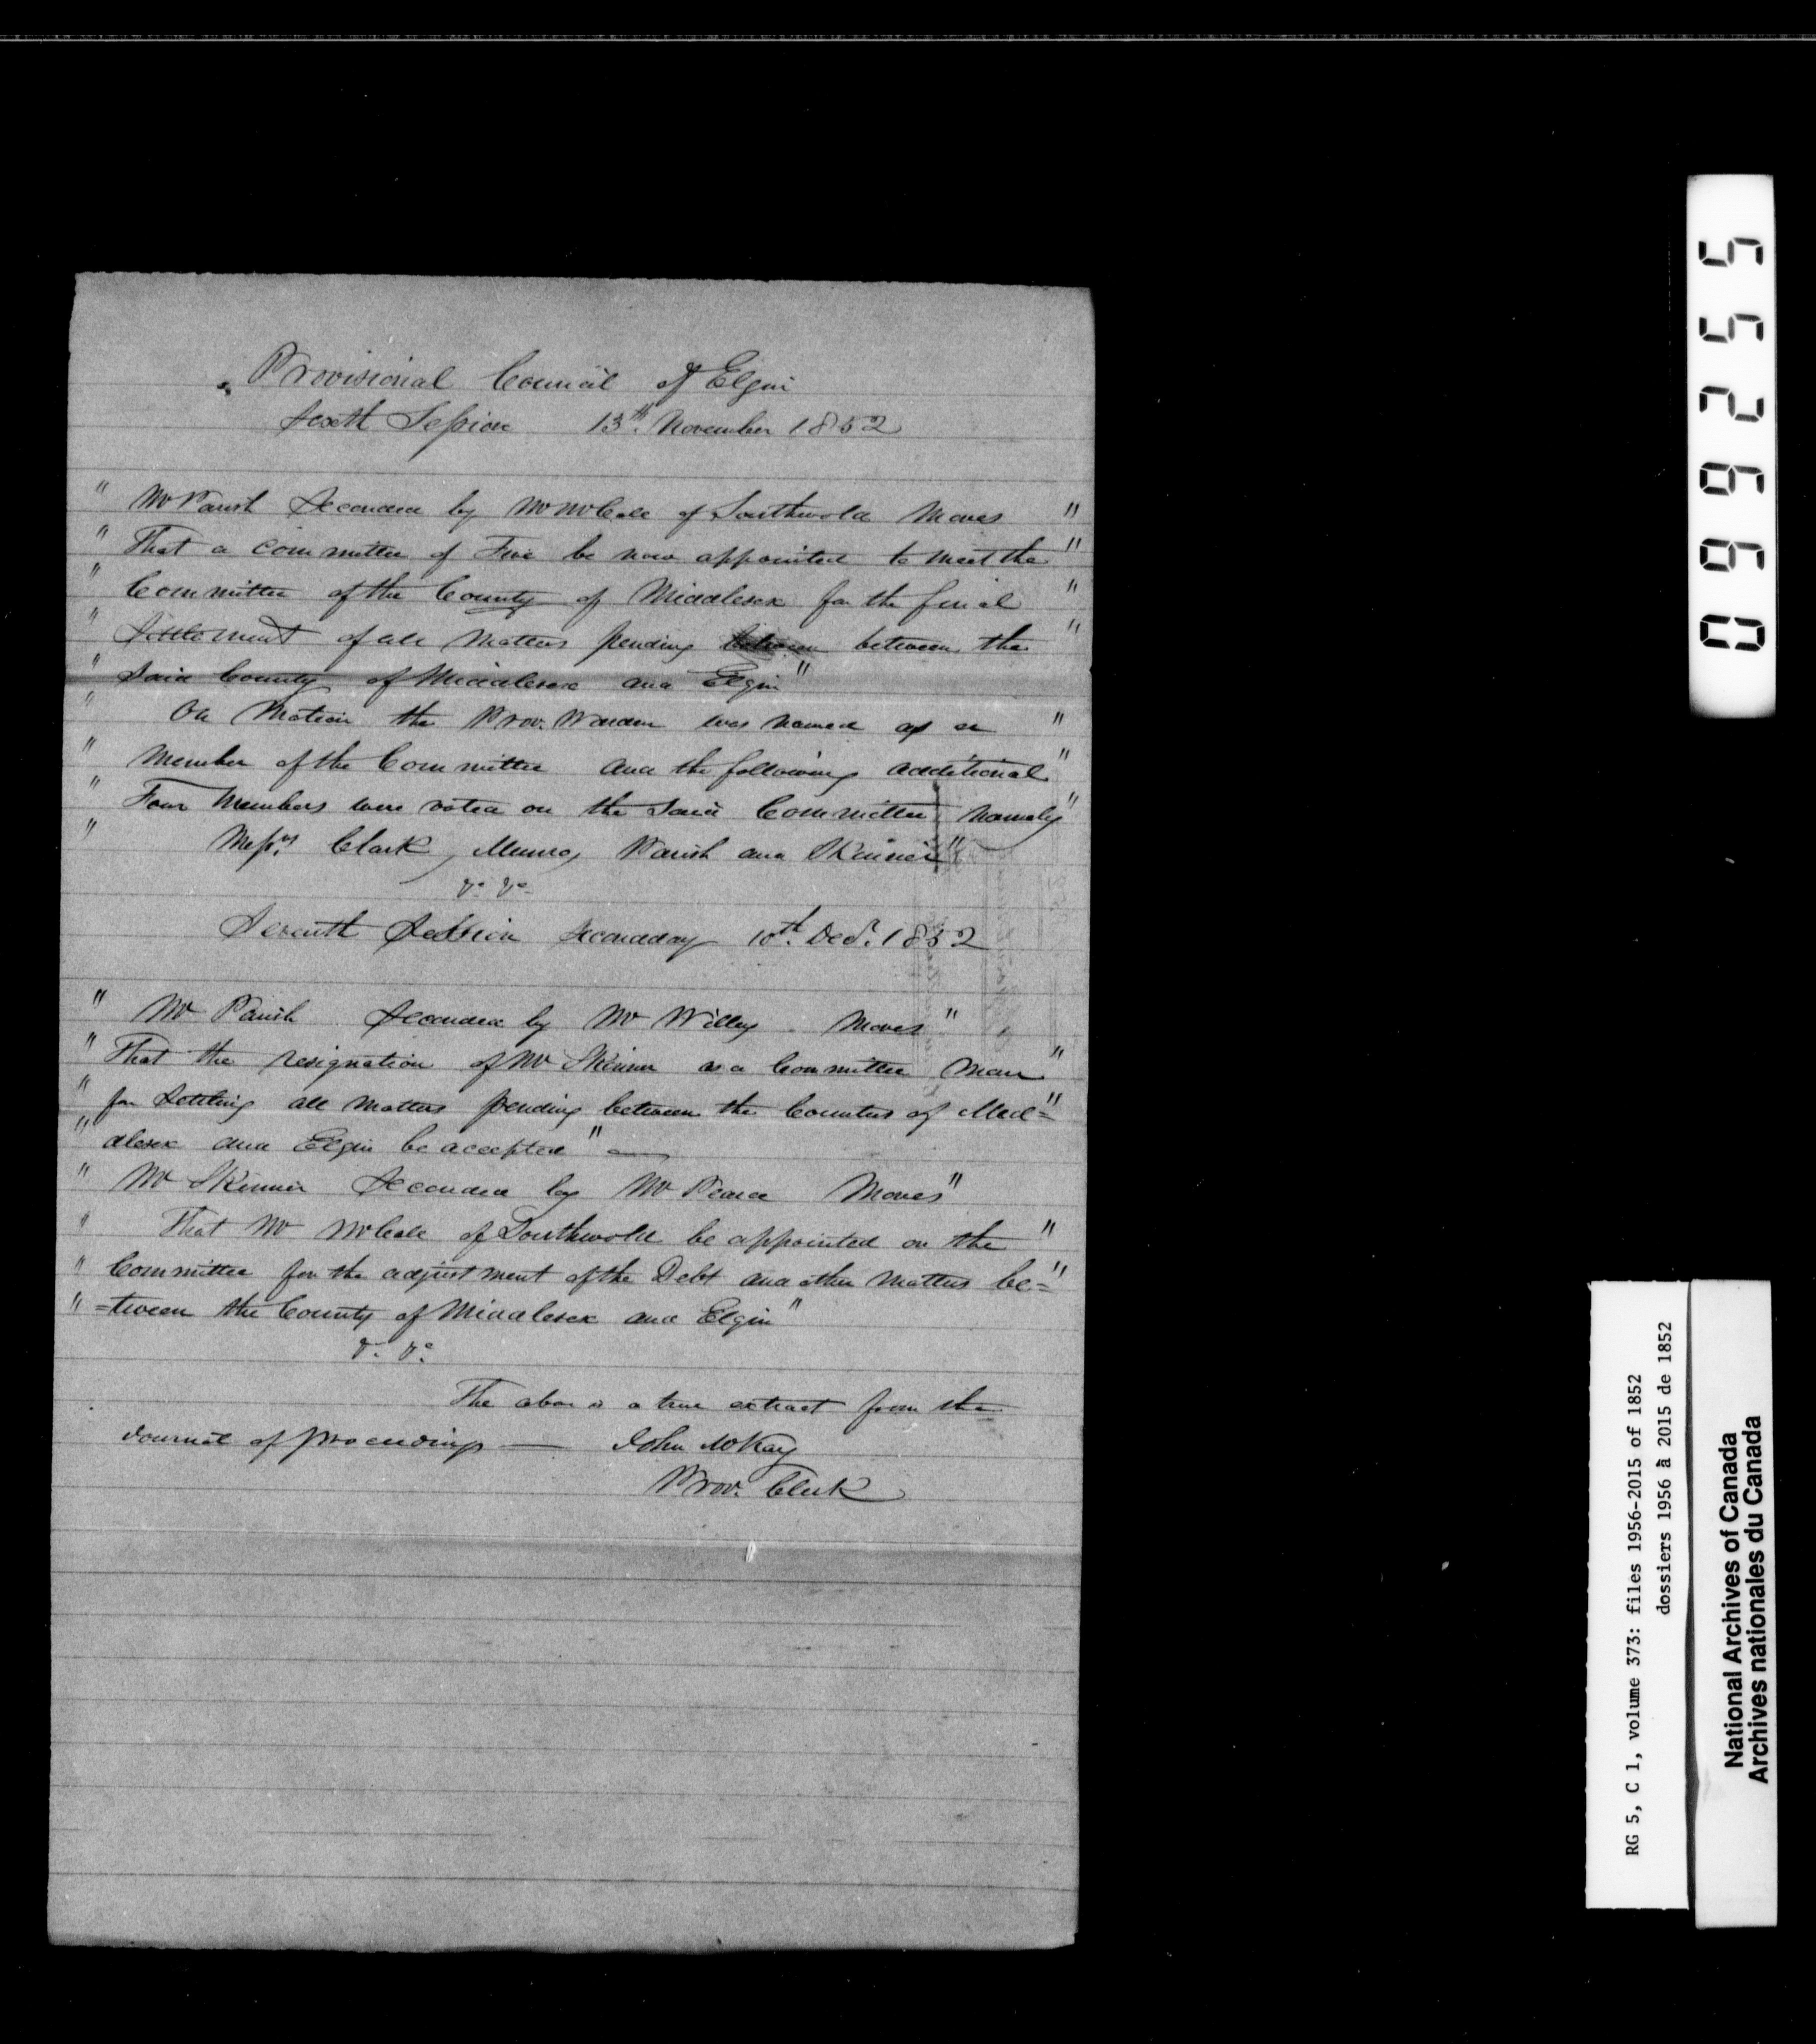 Provisional Council of Elgin
Sixth Session 13th. November 1852
" Mr Parish Seconded by Mr McCall of Southwold Moves "
" That a committee of Five be now appointed to meet the "
" Committee of the County of Middlesex for the final "
" Settlement of all Matters pending between between the "
" Said County of Middlesex and Elgin "
" On Motion the Prov. Warden was named as a "
" Member of the Committee and the following additional "
" Four Members were voted on the Said Committee Namely "
" Messrs Clark, Munro, Parish and Skinner "
Seventh Session Second day 10th. Decr. 1852
" Mr Parish Seconded by Mr Willey Moves "
" That the resignation of Mr Skinner as a Committee Man "
" for Settling all Matters pending between the Counties of Mid= "
" dlesex and Elgin be accepted " —
" Mr Skinner Seconded by Mr Pearce Moves "
" That Mr McCall of Southwold be appointed on the "
" Committee for the adjustment of the Debt and other Matters be= "
" =tween the County of Middlesex and Elgin "
The above is a true extract from the
Journal of proceedings — John McKay
Prov. Clerk
099255
RG 5, C 1, volume 373: files 1956-2015 of 1852
dossiers 1956 à 2015 de 1852
National Archives of Canada
Archives nationales du Canada